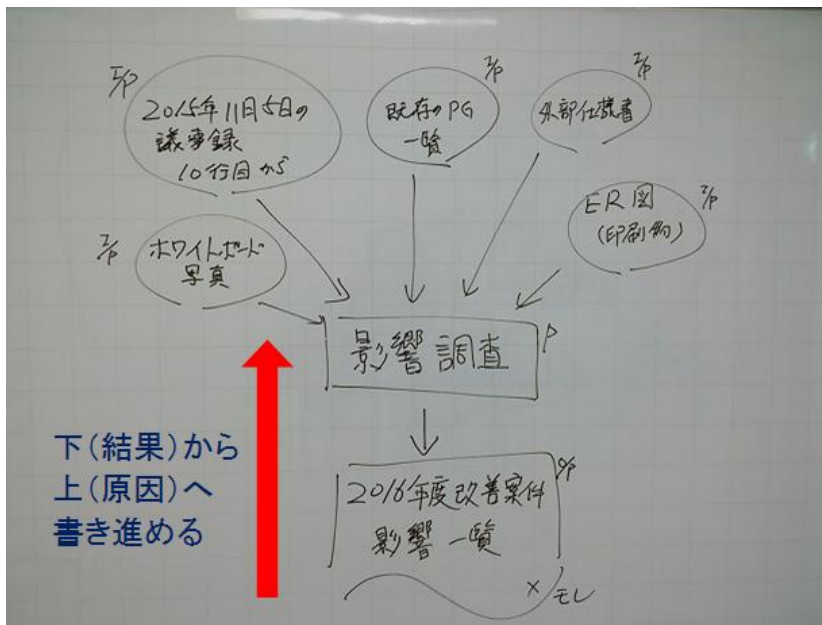 I/P
2015年11月5日の
議事録
10行目から
I/P
既存のPG
一覧
I/P
外部仕様書
I/P
ER図
(印刷物)
I/P
ホワイトボード
写真
影響調査
P
下(結果)から
上(原因)へ
書き進める
O/P
2016年度改善案件
影響一覧
×モレ